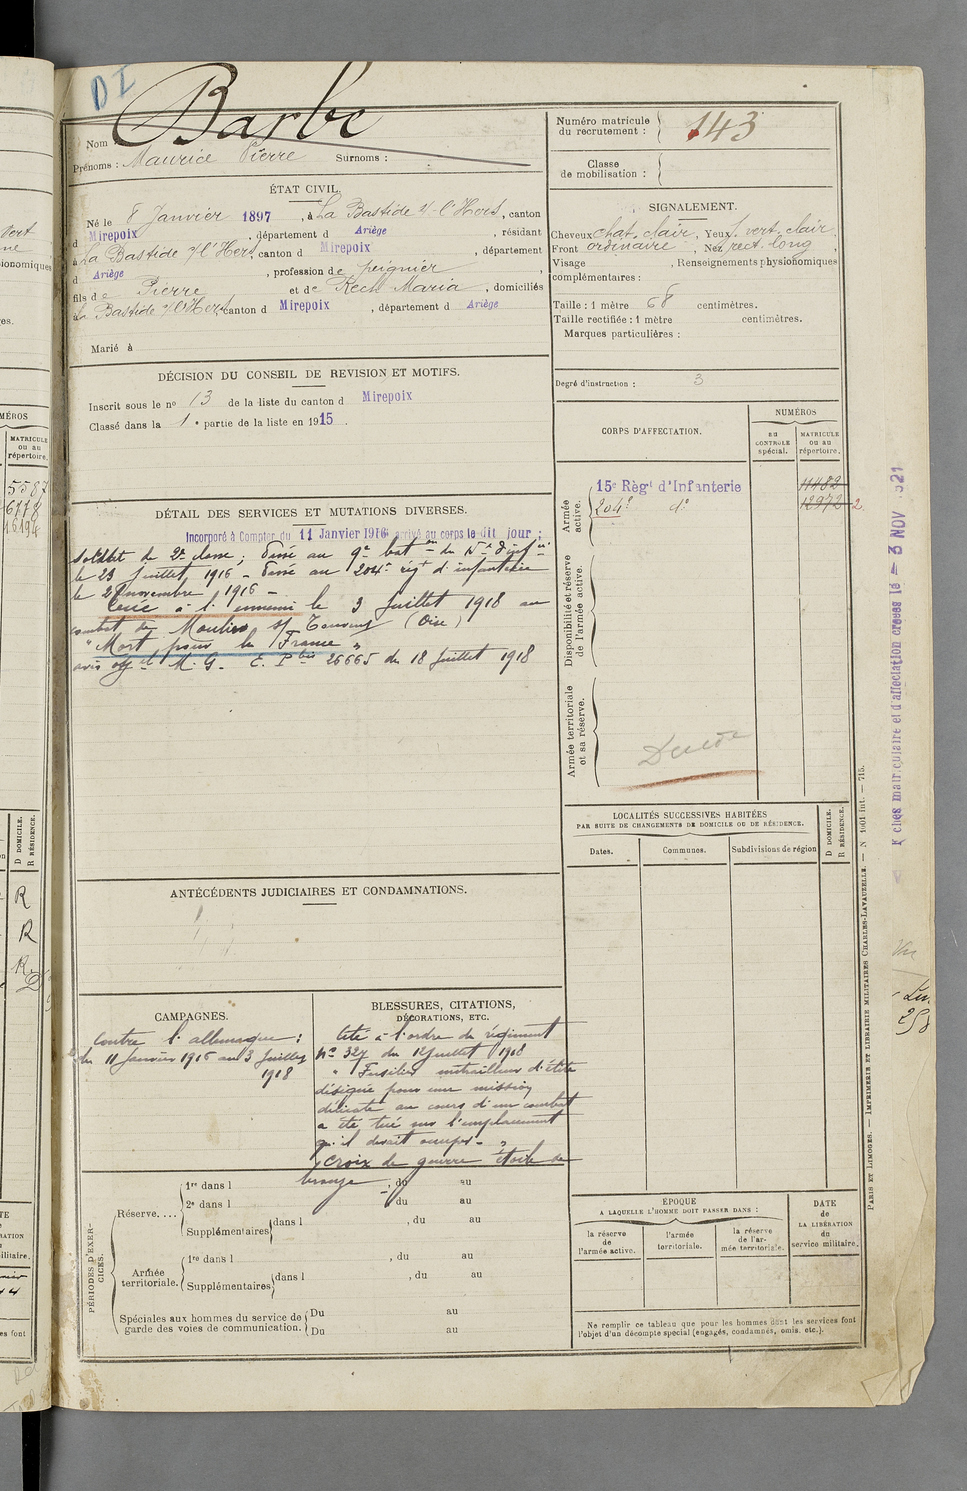 DI
Nom Barbe
Prénoms : Maurice Pierre Surnoms :
ÉTAT CIVIL.
Né le 8 Janvier 1897, à La Bastide s/ l'Hers, canton
d Mirepoix, département d Ariège, résidant
à La Bastide s/ l'Hers, canton d Mirepoix, département
d Ariège, profession de peignier,
fils de Pierre et de Rech Maria, domiciliés
à La Bastide s/ l'Hers, canton d Mirepoix, département d Ariège
Marié à
DÉCISION DU CONSEIL DE REVISION ET MOTIFS.
Inscrit sous le no 13 de la liste du canton d Mirepoix
Classé dans la 1e partie de la liste en 1915.
DÉTAIL DES SERVICES ET MUTATIONS DIVERSES.
Incorporé à Compter du 11 Janvier 1916 arrivé au corps le dit jour ;
soldat de 2e classe ; Passé au 9e baton du 15e d'infie
le 23 Juillet 1916 - Passé au 204e régt d'infanterie
le novembre 1916 -
à l'ennemi le 3 Juillet 1918 au
combat de Moulin s/ Touvent (Oise)
" Mort pour la France "
avis offel M. G. 26665 du 18 Juillet 1918
ANTÉCÉDENTS JUDICIAIRES ET CONDAMNATIONS.
CAMPAGNES.
Contre l'allemagne :
du 11 Janvier 1916 au 3 Juillet
1918
BLESSURES, CITATIONS,
DÉCORATIONS, ETC.
Cité à l'ordre du régiment
No 327 du 12 Juillet 1918
" Fusilier mitrailleur d'élite
désigné pour une mission
délicate au cours d'un combat
a été tué sur l'emplacement
qu'il devait occuper - "
Croix de guerre étoile de
bronze
PÉRIODES D'EXERCICES.
Réserve....
1re dans l , du au
2e dans l , du au
Supplémentaires dans l , du au
Armée
territoriale.
1re dans l , du au
Supplémentaires dans l , du au
Spéciales aux hommes du service de
garde des voies de communication.
Du au
Du au
Numéro matricule
du recrutement : 143
Classe
de mobilisation :
SIGNALEMENT.
Cheveux chat. clair, Yeux vert clair
Front ordinaire, Nez rect. long,
Visage , Renseignements physionomiques
complémentaires :
Taille : 1 mètre 68 centimètres.
Taille rectifiée : 1 mètre centimètres.
Marques particulières :
Degré d'instruction : 3
CORPS D'AFFECTATION.
NUMÉROS
au
CONTROLE
spécial.
MATRICULE
ou au
répertoire.
Armée
active.
15e Régt d'Infanterie 11482
204e do 12972
Disponibilité et réserve
de l'armée active.
Armée territoriale
et sa réserve.
LOCALITÉS SUCCESSIVES HABITÉES
PAR SUITE DE CHANGEMENTS DE DOMICILE OU DE RÉSIDENCE.
Dates. Communes. Subdivisions de région
D DOMICILE.
R RÉSIDENCE.
ÉPOQUE
A LAQUELLE L'HOMME DOIT PASSER DANS :
la réserve
de
l'armée active.
l'armée
territoriale.
la réserve
de l'ar-
mée territoriale.
DATE
de
LA LIBÉRATION
du
service militaire.
Ne remplir ce tableau que pour les hommes dont les services font
l'objet d'un décompte spécial (engagés, condamnés, omis, etc.).
PARIS ET LIMOGES. — IMPRIMERIE ET LIBRAIRIE MILITAIRES CHARLES-LAVAUZELLE. — N 1001 int. — 715.
ches matriculaire et d'affectation créées le - 3 NOV
MATRICULE
ou au
répertoire.
5587
6778
16194
D DOMICILE.
R RÉSIDENCE.
R
R
R